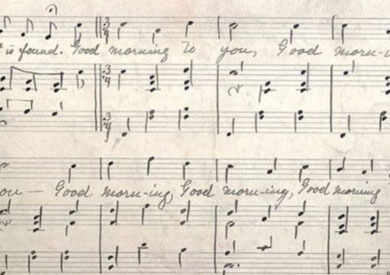 is found. Good morning to you, Good morn-i
ou — Good morn-ing, Good morn-ing, Good morning